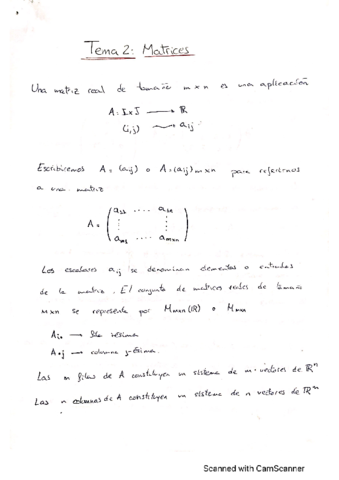 Tema 2: Matrices
Una matriz real de tamaño m x n es una aplicación
A: I x J ⟶ ℝ
(i,j) ⟶ aij
Escribiremos A = (aij) o A = (aij) m x n para referirnos
a una matriz
A = ( a11 .... a1n
⋮ ⋮
am1 .... amxn )
Los escalares aij se denominan elementos o entradas
de la matriz. El conjunto de matrices reales de tamaño
m x n se representa por Mmxn(ℝ) o Mmxn
Ai• ⟶ fila i-ésima
A•j ⟶ columna j-ésima.
Las m filas de A constituyen un sistema de m-vectores de ℝn
Las n columnas de A constituyen un sistema de n vectores de ℝm
Scanned with CamScanner